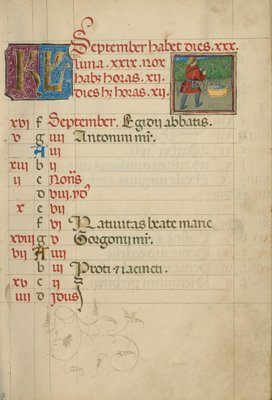 KL September habet dies. xxx.
luna. xxix. nox
habz horas. xii.
dies hz horas. xii.
xvi f September. Egidii abbatis.
v g iiii Antonini mr̃.
A iii
xiii b ii
ii c Noñs
D viii. ydº
x e vii
f vi Natiuitas beate marie
xviii g v Gorgonii mr̃.
vii A iiii
b iii Proti et iacincti.
xv c ii
iiii D Idus